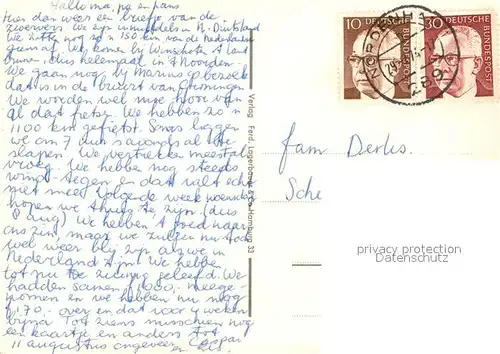 Hallo ma, pa en hans
Hier dan weer een briefje van de
zwervers. We zijn inmiddels in N. Duitsland
We zitten nog zo'n 150 km van de Nederlandse
grens af. We komen bij Winschoten 't land
binnen dus helemaal in 't Noorden.
We gaan nog bij Marius op bezoek
dat is in de buurt van Groningen
We worden wel moe hoor van
al dat fietsen. We hebben zo'n
1100 km gefietst. Soms liggen
we om 7 uur 's avonds al te
slapen. We vertrekken meestal
vroeg. We hebben nog steeds
wind tegen en dat valt echt
niet mee. Volgende week woensdag
hopen we thuis te zijn (dus
8 aug) We hebben 't goed naar
ons zin, maar we zullen nu toch
wel weer blij zijn als we in
Nederland zijn. We hebben
tot nu toe zuinig geleefd. We
hadden samen f 1000,- meege-
nomen en we hebben nu nog
f 170,- over en dat voor 4 weken
bijna. Tot ziens misschien nog
een kaartje en anders tot
11 augustus ongeveer
Verlag Ferd. Lagerbauer & Co. Hamburg 33
10
DEUTSCHE BUNDESPOST
30
DEUTSCHE BUNDESPOST
Fam. Derks.
Sche
privacy protection
Datenschutz